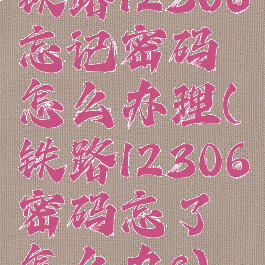 铁路12306
忘记密码
怎么办理(
铁路12306
密码忘了
怎么办?)